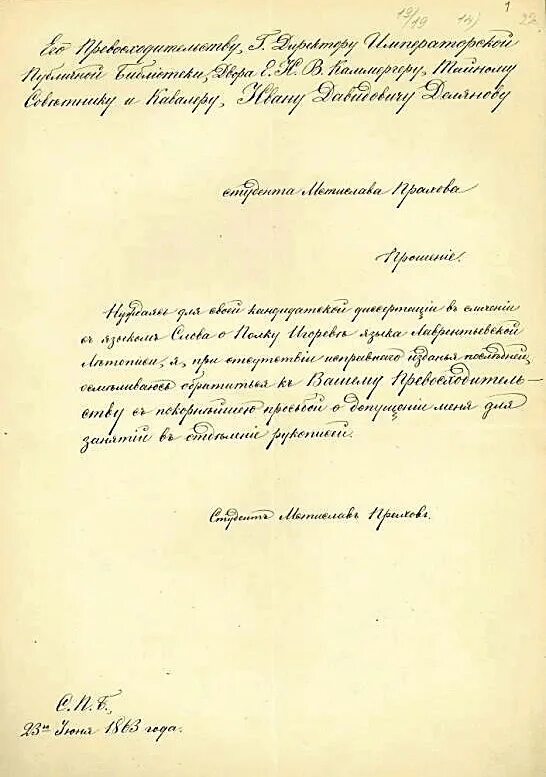 1
19/19 14) 22.
Его Превосходительству, Г. Директору Императорской
Публичной Библіотеки, Двора Е. И. В. Каммергеру, Тайному
Совѣтнику и Кавалеру, Ивану Давидовичу Делянову
студента Мстислава Прахова
Прошеніе.
Нуждаясь для своей кандидатской диссертаціи въ сличеніи
съ языкомъ Слова о Полку Игоревѣ языка Лаврентьевской
Лѣтописи, я, при отсутствіи исправнаго изданья послѣдней,
осмѣливаюсь обратиться къ Вашему Превосходитель-
ству съ покорнѣйшею просьбой о допущеніи меня для
занятій въ отдѣленіе рукописей.
Студентъ Мстиславъ Праховъ.
С. П. Б.
23го Іюня 1863 года.